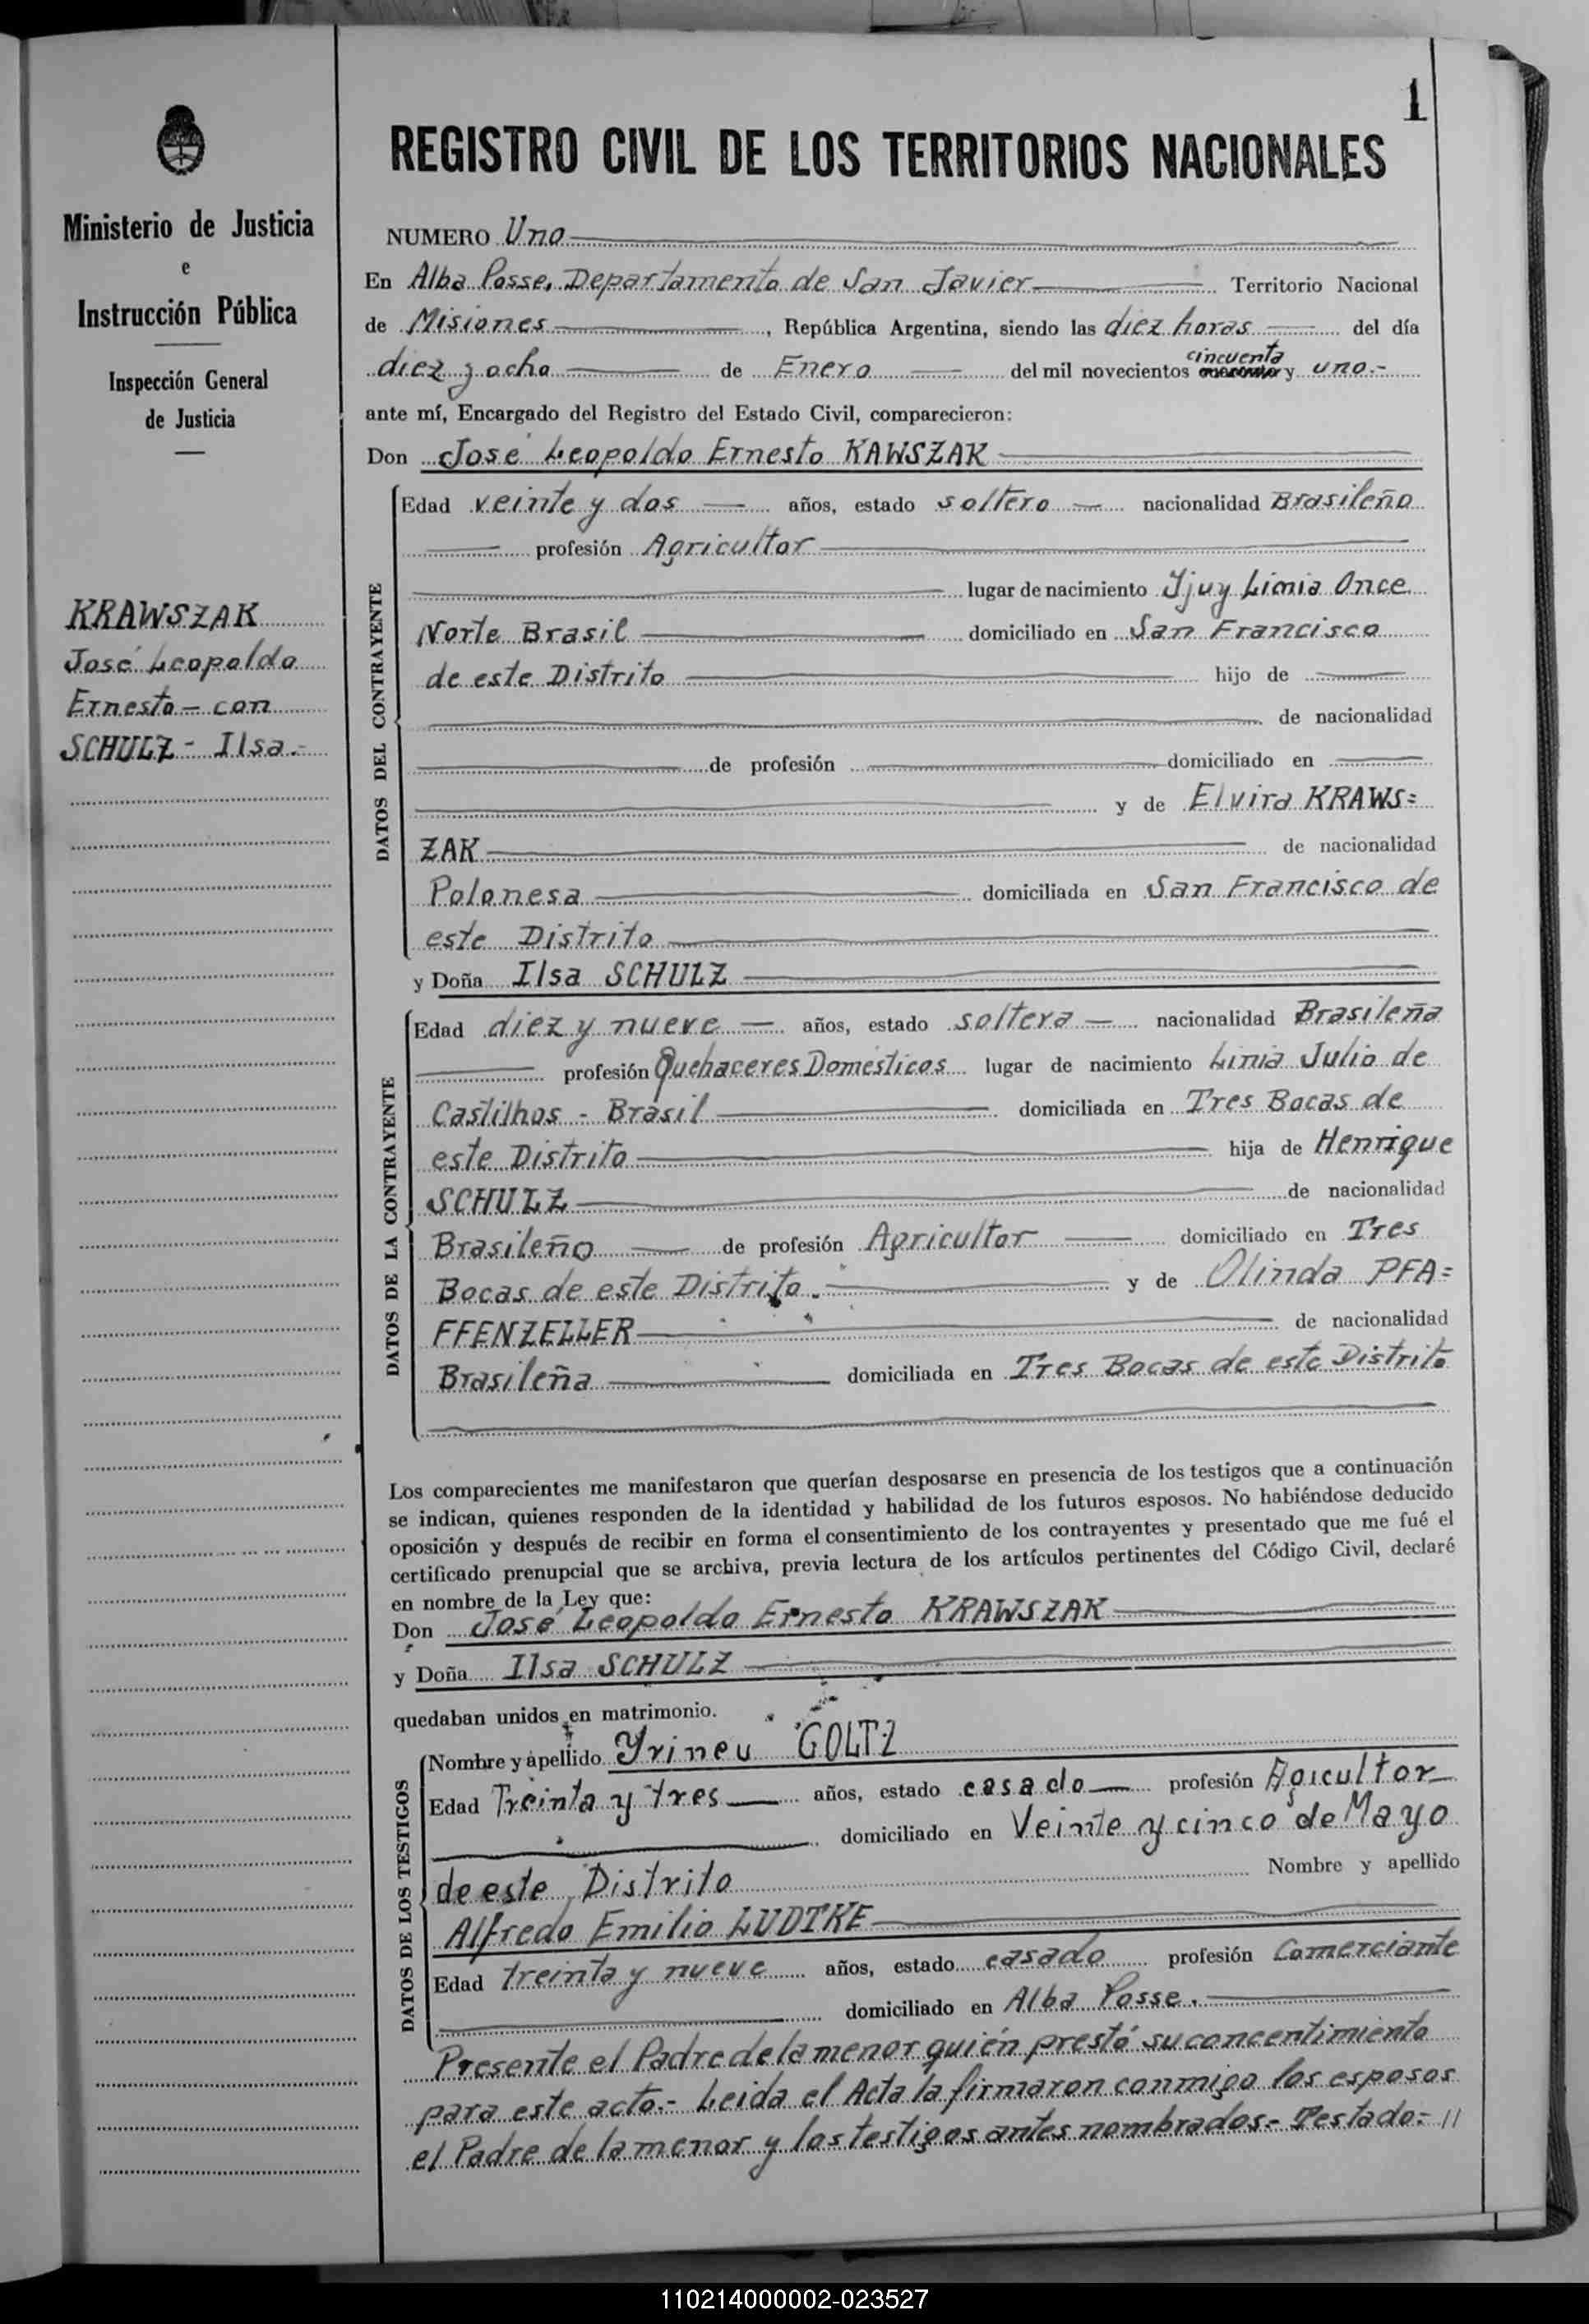 1
Ministerio de Justicia
e
Instrucción Pública
Inspección General
de Justicia
KRAWSZAK
José Leopoldo
Ernesto - con
SCHULZ - Ilsa.-
REGISTRO CIVIL DE LOS TERRITORIOS NACIONALES
NUMERO Uno
En Alba Posse, Departamento de San Javier Territorio Nacional
de Misiones, República Argentina, siendo las diez horas del día
cincuenta
diez y ocho de Enero del mil novecientos y uno.-
ante mí, Encargado del Registro del Estado Civil, comparecieron:
Don José Leopoldo Ernesto KAWSZAK
DATOS DEL CONTRAYENTE
Edad veinte y dos años, estado soltero nacionalidad Brasileño
profesión Agricultor
lugar de nacimiento Ijuy Linia Once
Norte Brasil domiciliado en San Francisco
de este Distrito hijo de
de nacionalidad
de profesión domiciliado en
y de Elvira KRAWS=
ZAK de nacionalidad
Polonesa domiciliada en San Francisco de
este Distrito
y Doña Ilsa SCHULZ
DATOS DE LA CONTRAYENTE
Edad diez y nueve años, estado soltera nacionalidad Brasileña
profesión Quehaceres Domésticos lugar de nacimiento Linia Julio de
Castilhos - Brasil domiciliada en Tres Bocas de
este Distrito hija de Henrique
SCHULZ de nacionalidad
Brasileño de profesión Agricultor domiciliado en Tres
Bocas de este Distrito. y de Olinda PFA=
FFENZELLER de nacionalidad
Brasileña domiciliada en Tres Bocas de este Distrito
Los comparecientes me manifestaron que querían desposarse en presencia de los testigos que a continuación
se indican, quienes responden de la identidad y habilidad de los futuros esposos. No habiéndose deducido
oposición y después de recibir en forma el consentimiento de los contrayentes y presentado que me fué el
certificado prenupcial que se archiva, previa lectura de los artículos pertinentes del Código Civil, declaré
en nombre de la Ley que:
Don José Leopoldo Ernesto KRAWSZAK
y Doña Ilsa SCHULZ
quedaban unidos en matrimonio.
DATOS DE LOS TESTIGOS
Nombre y apellido Yrineu GOLTZ
Edad Treinta y tres años, estado casado profesión Agicultor
domiciliado en Veinte y cinco de Mayo
de este Distrito Nombre y apellido
Alfredo Emilio LUDTKE
Edad treinta y nueve años, estado casado profesión Comerciante
domiciliado en Alba Posse.
Presente el Padre de la menor quién prestó su concentimiento
para este acto.- Leida el Acta la firmaron conmigo los esposos
el Padre de la menor y los testigos antes nombrados.- Testado:- //
110214000002-023527